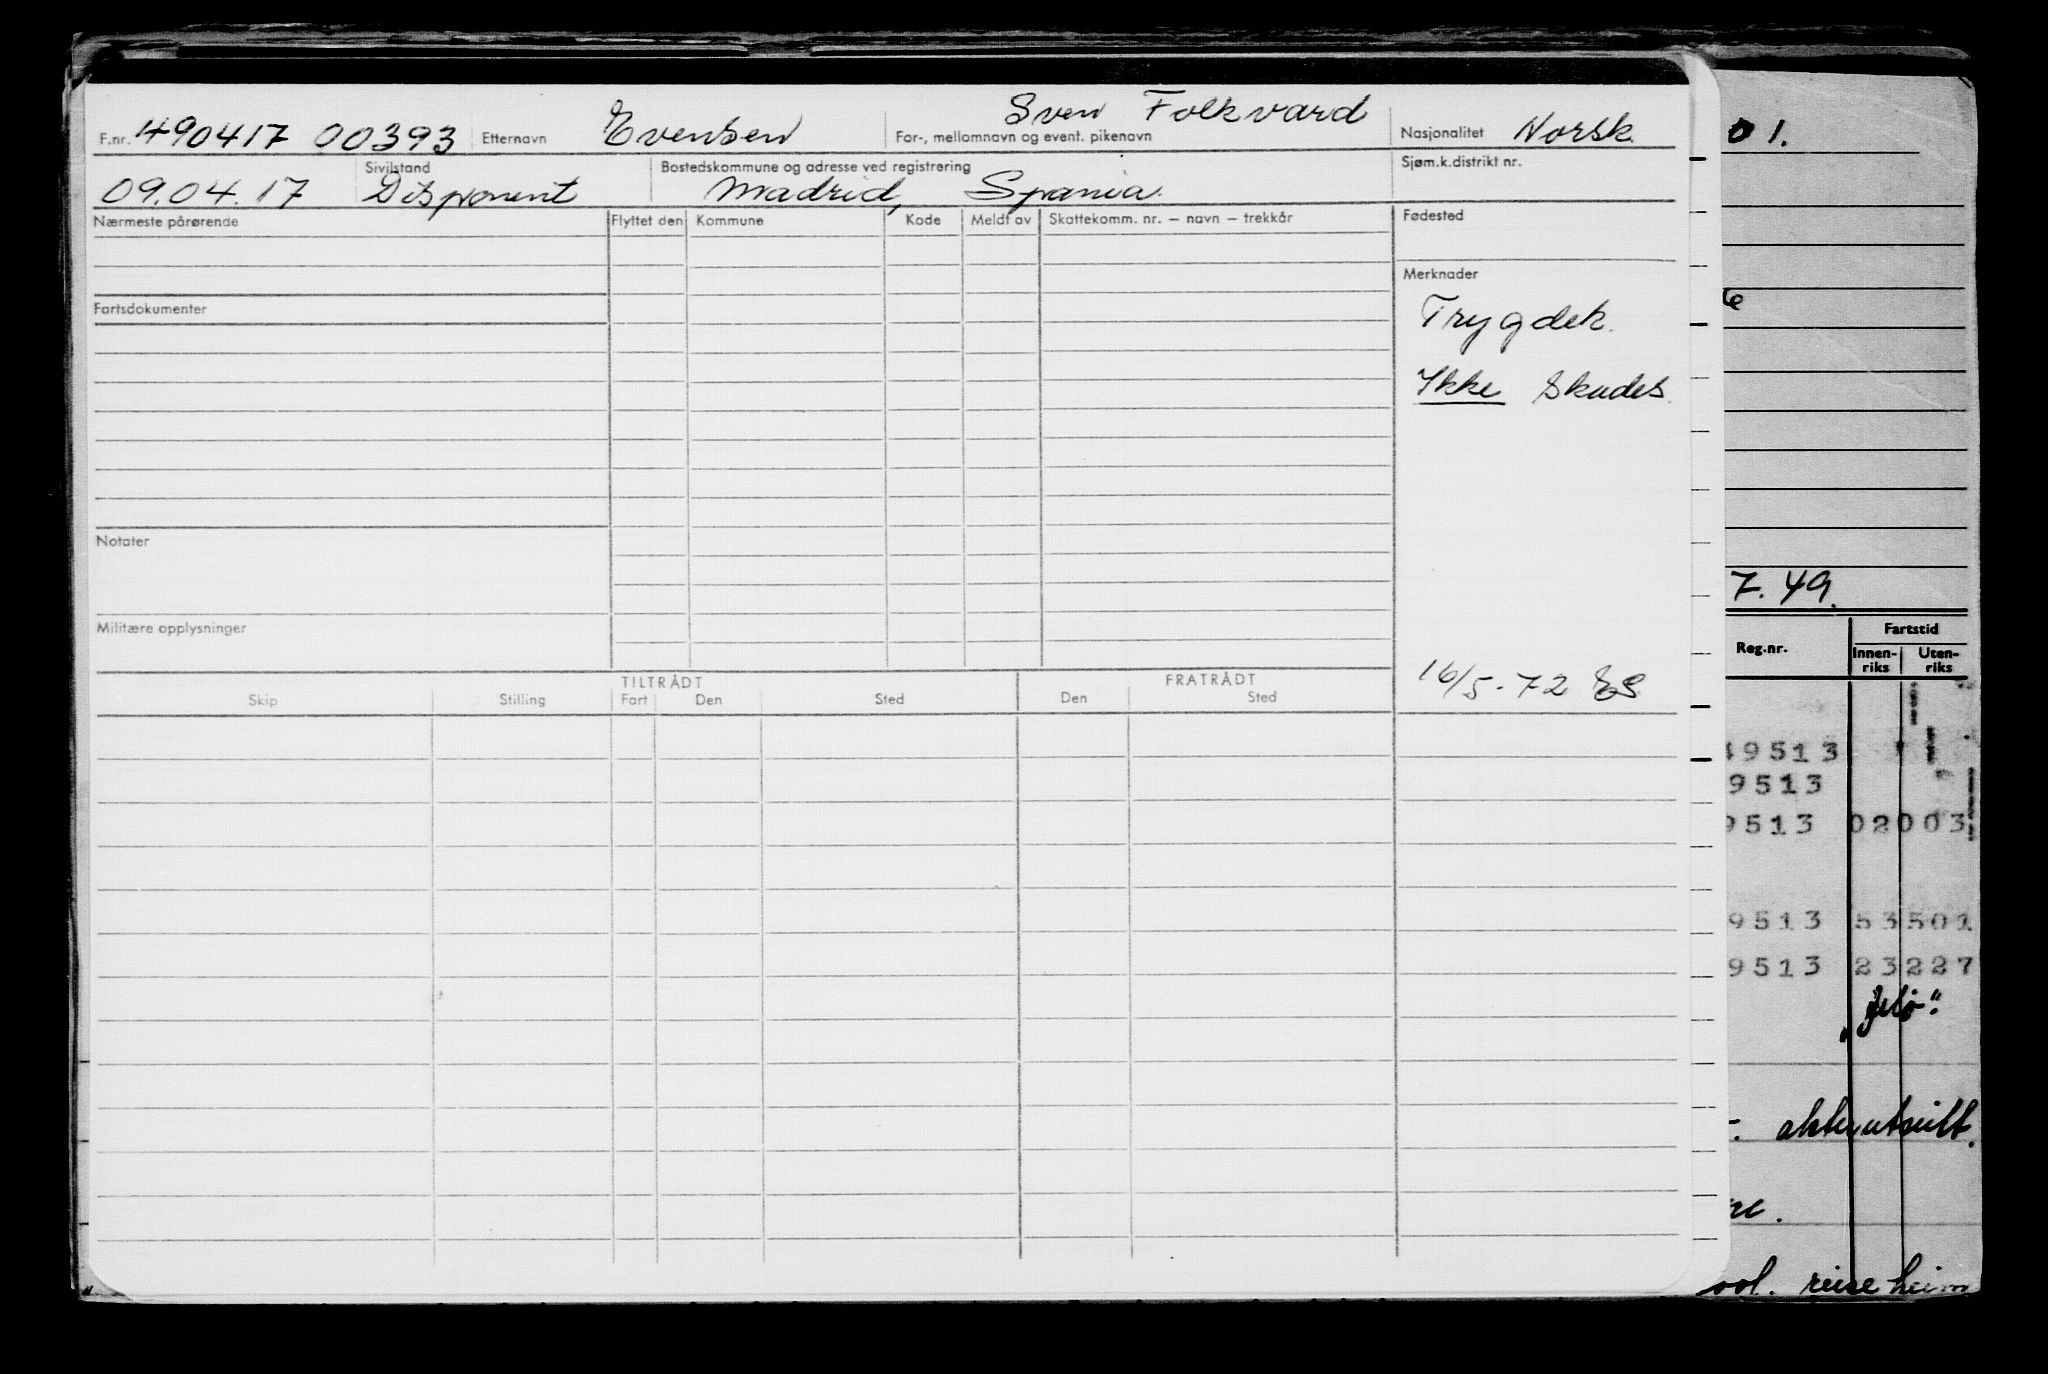 F.nr. 490417 00393 Etternavn Evensen For-, mellomnavn og event. pikenavn Sven Folkvard Nasjonalitet Norsk
09.04.17 Sivilstand Disponent Bostedskommune og adresse ved registrering Madrid, Spania. Sjøm.k.distrikt nr.
Nærmeste pårørende Flyttet den Kommune Kode Meldt av Skattekomm. nr. – navn – trekkår Fødested
Merknader
Fartsdokumenter
Trygdek.
Ikke skades.
Notater
Militære opplysninger
16/5-72 ES
TILTRÅDT FRATRÅDT
Skip Stilling Fart Den Sted Den Sted
01.
7.49.
Fartstid
Reg.nr. Innen-riks Uten-riks
49513
9513
9513 02003
9513 53501
9513 23227
akterutseilt.
reise heim